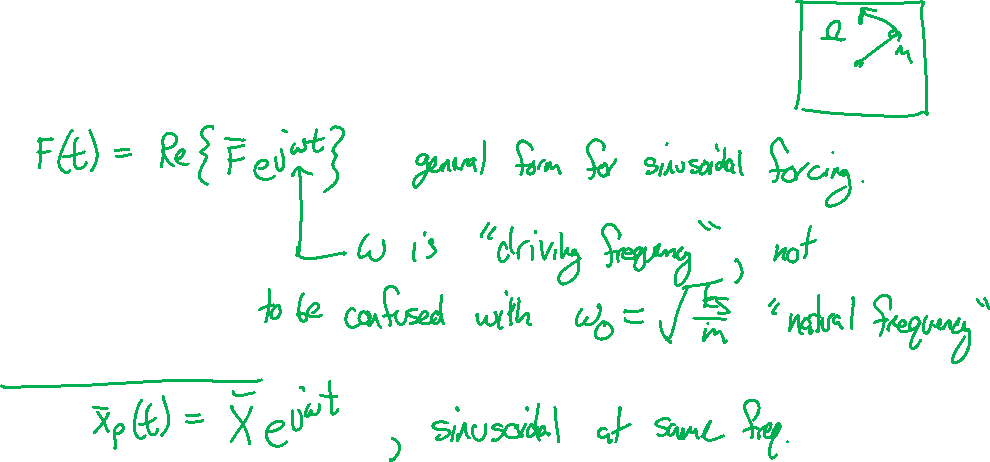 Ω
m
F(t) = Re{ F̄ e^{jωt} } general form for sinusoidal forcing.
ω is "driving frequency", not
to be confused with ω₀ = √(k/m) "natural frequency"
x̄ₚ(t) = X̄ e^{jωt}, sinusoidal at same freq.